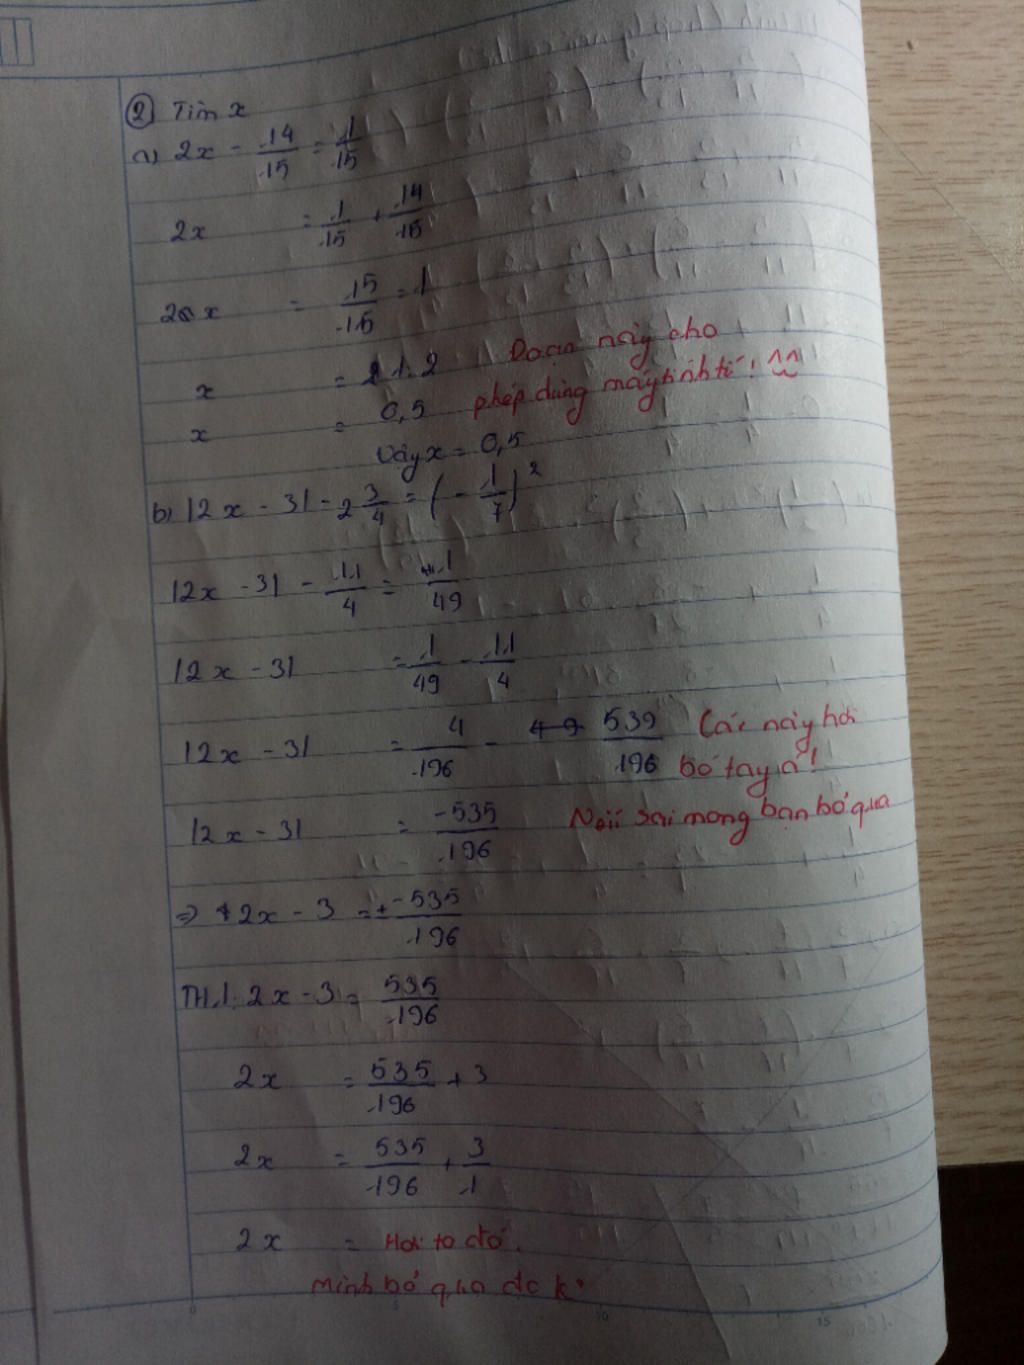 ② Tìm x
a) 2x - 14/15 = 1/15
2x = 1/15 + 14/15
2x = 15/15 = 1
x = 1:2 Đoạn này cho
phép dùng máy tính tí! ^^
x = 0,5
Vậy x = 0,5
b) |2x - 3| - 2 3/4 = (-1/7)²
|2x - 3| - 11/4 = 1/49
|2x - 3| = 1/49 - 11/4
|2x - 3| = 4/196 - 539/196 Các này hơi
bó tay á!
|2x - 3| = -535/196 Nếu sai mong bạn bỏ qua
=> 2x - 3 = ± -535/196
TH1: 2x - 3 = 535/196
2x = 535/196 + 3
2x = 535/196 + 3/1
2x = Hơi to đó.
Mình bỏ qua đc k?
0 5 10 15